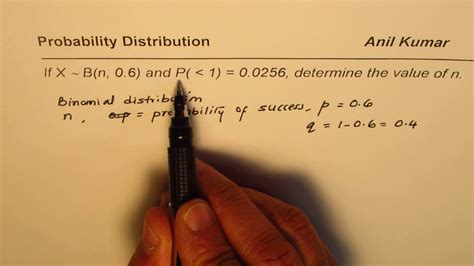 Probability Distribution Anil Kumar
If X ~ B(n, 0.6) and P( < 1) = 0.0256, determine the value of n.
Binomial distribution
n, = probability of success, p = 0.6
q = 1-0.6 = 0.4